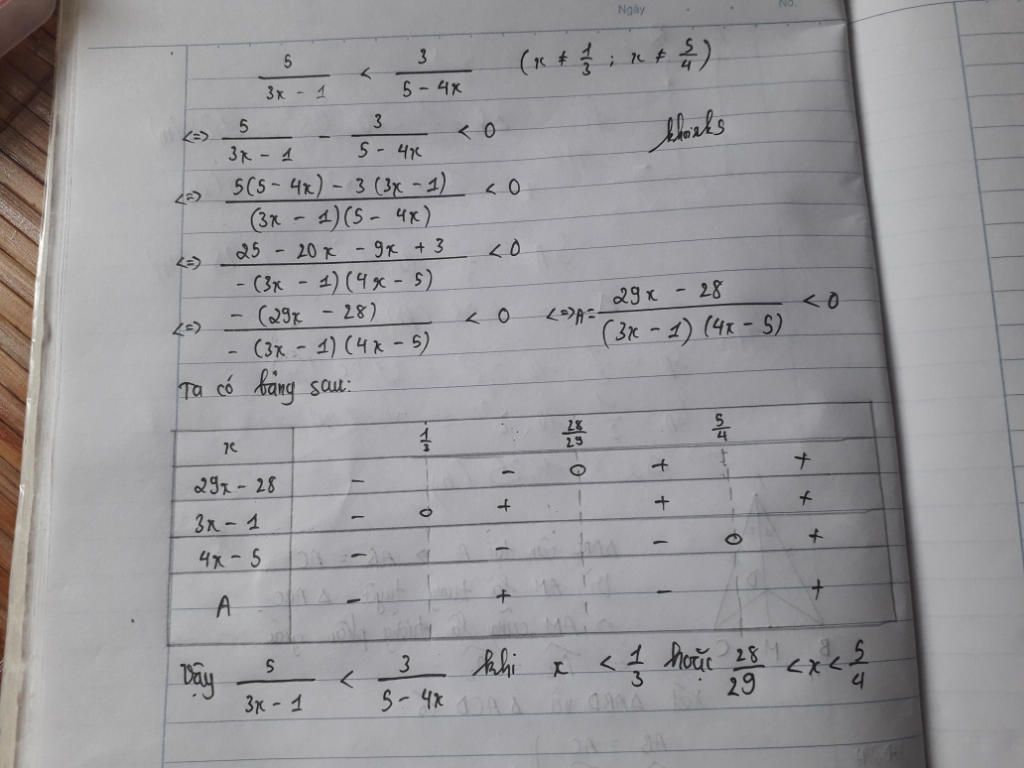 Ngày
No.
5/(3x - 1) < 3/(5 - 4x) (x ≠ 1/3 ; x ≠ 5/4)
<=> 5/(3x - 1) - 3/(5 - 4x) < 0
<=> (5(5 - 4x) - 3(3x - 1))/((3x - 1)(5 - 4x)) < 0
<=> (25 - 20x - 9x + 3)/(-(3x - 1)(4x - 5)) < 0
<=> (-(29x - 28))/(-(3x - 1)(4x - 5)) < 0 <=> A = (29x - 28)/((3x - 1)(4x - 5)) < 0
Ta có bảng sau:
x 1/3 28/29 5/4
29x - 28 - - 0 + +
3x - 1 - 0 + + +
4x - 5 - - - 0 +
A - + - +
Vậy 5/(3x - 1) < 3/(5 - 4x) khi x < 1/3 hoặc 28/29 < x < 5/4